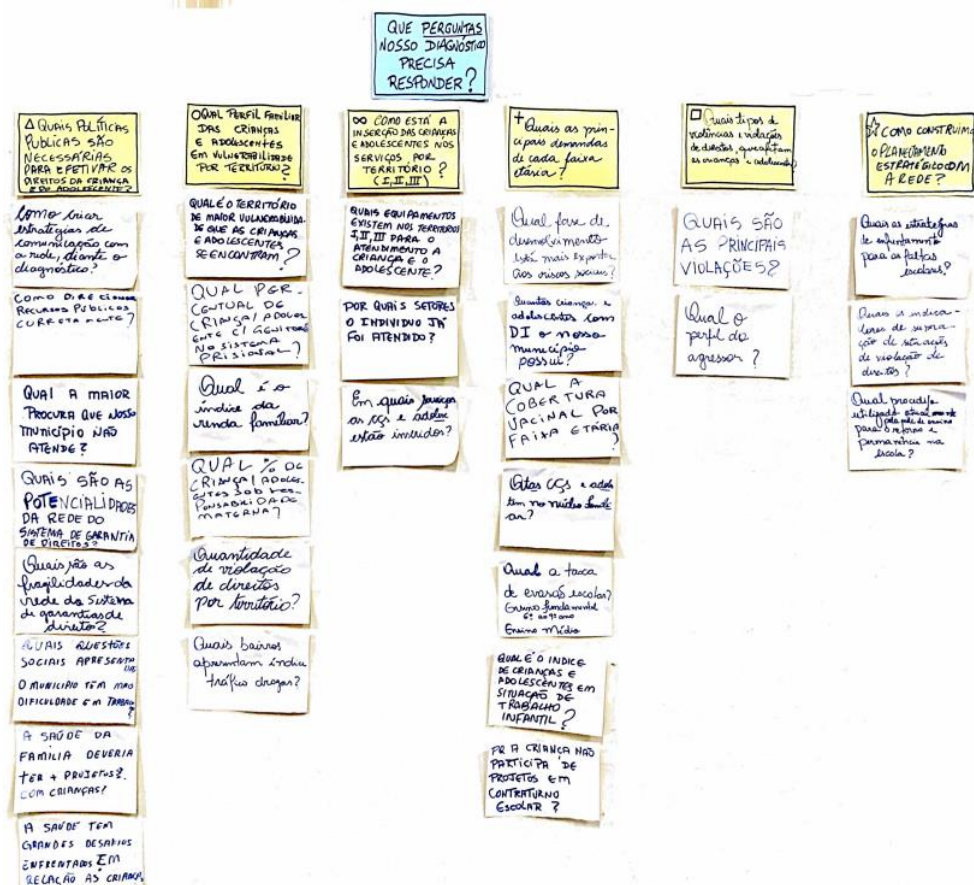 QUE PERGUNTAS
NOSSO DIAGNÓSTICO
PRECISA
RESPONDER?
△ QUAIS POLÍTICAS
PUBLICAS SÃO
NECESSÁRIAS
PARA EFETIVAR OS
DIREITOS DA CRIANÇA
E DO ADOLESCENTE?
Como criar
estratégias de
comunicação com
a rede, diante o
diagnóstico?
COMO DIRECIONAR
RECURSOS PUBLICOS
CORRETAMENTE?
QUAL A MAIOR
PROCURA QUE NOSSO
MUNICÍPIO NÃO
ATENDE?
QUAIS SÃO AS
POTENCIALIDADES
DA REDE DO
SISTEMA DE GARANTIA
DE DIREITOS?
Quais são as
fragilidades da
rede do Sistema
de garantias de
direito?
QUAIS QUESTÕES
SOCIAIS
O MUNICÍPIO TEM MAIS
DIFICULDADE EM
A SAÚDE DA
FAMILIA DEVERIA
TER + PROJETOS?
COM CRIANÇAS!
A SAÚDE TEM
GRANDES DESAFIOS
ENFRENTADOS EM
RELAÇÃO AS
O QUAL PERFIL FAMILIAR
DAS CRIANÇAS
E ADOLESCENTES
EM VULNERABILIDADE
POR TERRITÓRIO?
QUAL É O TERRITÓRIO
DE MAIOR VULNERABILIDA-
DE QUE AS CRIANÇAS
E ADOLESCENTES
SE ENCONTRAM?
QUAL PER-
CENTUAL DE
CRIANÇA/ADOLES
ENTE C/ GENITORES
NO SISTEMA
PRISIONAL?
Qual é o
índice da
renda familiar?
QUAL % DE
CRIANÇA/ADOLES-
ENTES SOB RES-
PONSABILIDADE
MATERNA?
Quantidade
de violação
de direitos
por território?
Quais bairros
apresentam índice
tráfico drogas?
∞ COMO ESTÁ A
INSERÇÃO DAS CRIANÇAS
E ADOLESCENTES NOS
SERVIÇOS, POR
TERRITÓRIO?
(I, II, III)
QUAIS EQUIPAMENTOS
EXISTEM NOS TERRITÓRIOS
I, II, III PARA O
ATENDIMENTO A
CRIANÇA E O
ADOLESCENTE?
POR QUAIS SETORES
O INDIVIDUO JÁ
FOI ATENDIDO?
Em quais serviços
as cçs e adolesc
estão inseridos?
+ Quais as prin-
cipais demandas
de cada faixa
etária?
Qual fase de
desenvolvimento
está mais exposta
aos riscos sociais?
Quantas crianças e
adolescentes com
DI o nosso
município
possui?
QUAL A
COBERTURA
VACINAL POR
FAIXA ETÁRIA
?
Qtas cçs e adols
tem no núcleo famili
ar?
Qual a taxa
de evasão escolar?
Ensino fundamental
6º ao 9º ano
Ensino Médio
QUAL É O INDICE
DE CRIANÇAS E
ADOLESCENTES EM
SITUAÇÃO DE
TRABALHO
INFANTIL?
A CRIANÇA NÃO
PARTICIPA DE
PROJETOS EM
CONTRATURNO
ESCOLAR?
□ Quais tipos de
violências e violações
de direitos, que afetam
as crianças e adolescentes?
QUAIS SÃO
AS PRINCIPAIS
VIOLAÇÕES?
Qual o
perfil do
agressor?
☆ COMO CONSTRUIMOS
O PLANEJAMENTO
ESTRATÉGICO COM
A REDE?
Quais as estratégias
de enfrentamento
para as faltas
escolares?
Quais os indica-
dores de
ção de situações
de violação de
direitos?
Qual
utilizado atualmente
pela rede de ensino
para o retorno e
permanência na
escola?